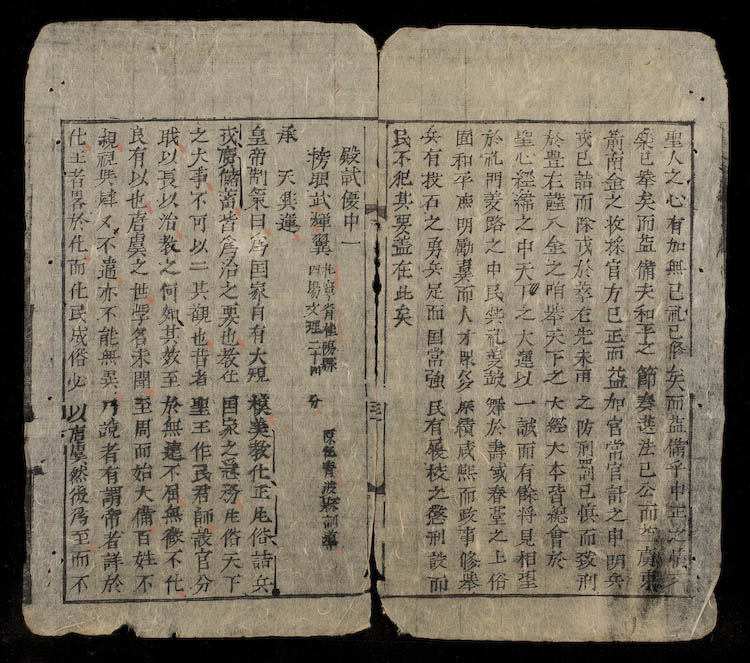 聖人之心有加無已礼已修矣而益備乎中正之
樂已舉矣而益備夫和平之節奏選法已公而
箭南金之收採官方已正而益加官常官計之申明兵
戎已詰而除戎於萃在先未雨之防刑罰已慎而致刑
於豊在謹八金之咱舉天下之大經大本皆総會於
聖心經綸之中天下之大運以一誠而有餘將見相率
於礼門義路之中民興礼義鼓舞於壽域春臺之上俗
面和平庶明勵翼而人才眾多庶績咸熙而政事修舉
兵有投石之勇兵足而国常強民有履校之懲刑設而
民不犯其要蓋在此矣
殿試優中一
榜眼武輝翼
青波縣訓導
承 天興運
皇帝制策曰為国家自有大規模美教化正風俗詰兵
戎廣儲蓄皆為治之要也教化国家之急務風俗天下
之大事不可以二其觀也昔者聖王作民君師設官分
職以長以治教之何如其效至於無遠不屆無微不化
良有以也唐虞之世學名未聞至周而始大備百姓不
親祝典肆又不遺亦不能無異乃說者有謂帝者詳於
化王者畧於化而化民成俗必以唐虞然後為至而不